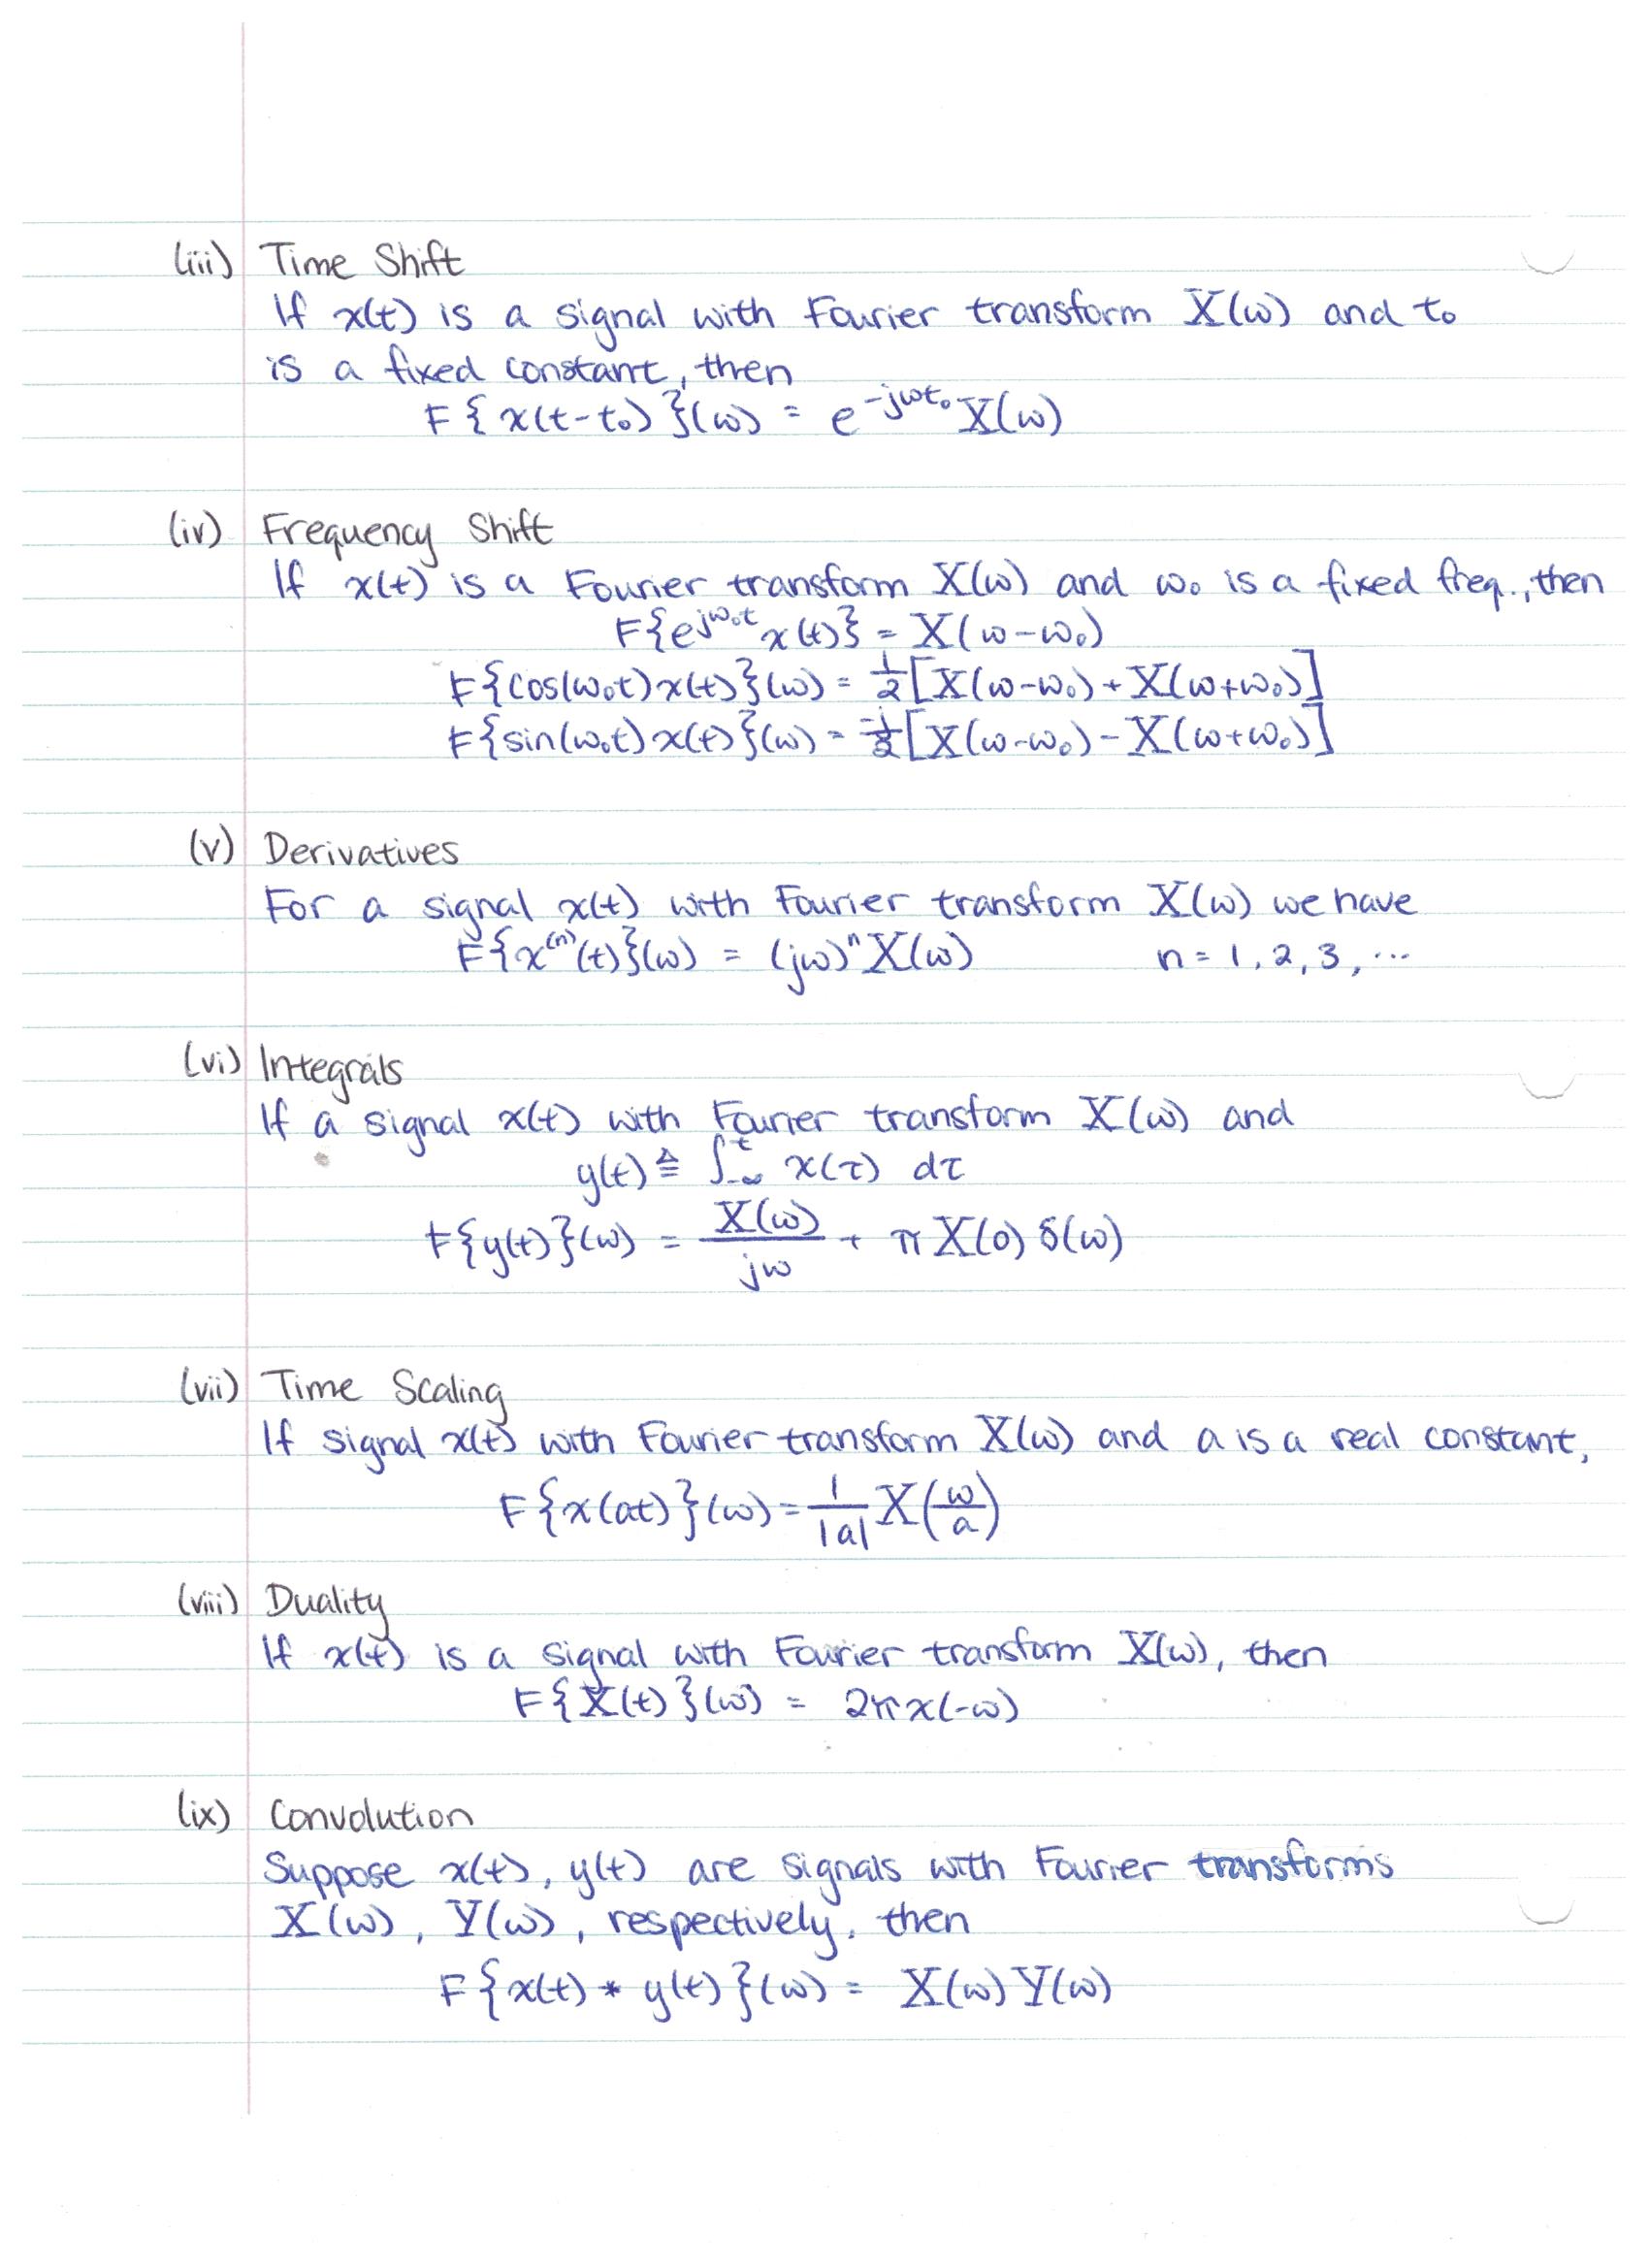 (iii) Time Shift
If x(t) is a signal with Fourier transform X(ω) and t₀
is a fixed constant, then
F{x(t-t₀)}(ω) = e^{-jωt₀} X(ω)
(iv) Frequency Shift
If x(t) is a Fourier transform X(ω) and ω₀ is a fixed freq., then
F{e^{jω₀t} x(t)} = X(ω-ω₀)
F{cos(ω₀t)x(t)}(ω) = 1/2 [X(ω-ω₀) + X(ω+ω₀)]
F{sin(ω₀t)x(t)}(ω) = [X(ω-ω₀) - X(ω+ω₀)]
(v) Derivatives
For a signal x(t) with Fourier transform X(ω) we have
F{x^{(n)}(t)}(ω) = (jω)^n X(ω) n = 1, 2, 3, ...
(vi) Integrals
If a signal x(t) with Fourier transform X(ω) and
y(t) ≜ ∫_{-∞}^{t} x(τ) dτ
F{y(t)}(ω) = X(ω)/jω + π X(0) δ(ω)
(vii) Time Scaling
If signal x(t) with Fourier transform X(ω) and a is a real constant,
F{x(at)}(ω) = 1/|a| X(ω/a)
(viii) Duality
If x(t) is a signal with Fourier transform X(ω), then
F{X(t)}(ω) = 2πx(-ω)
(ix) Convolution
Suppose x(t), y(t) are signals with Fourier transforms
X(ω), Y(ω), respectively, then
F{x(t) * y(t)}(ω) = X(ω) Y(ω)